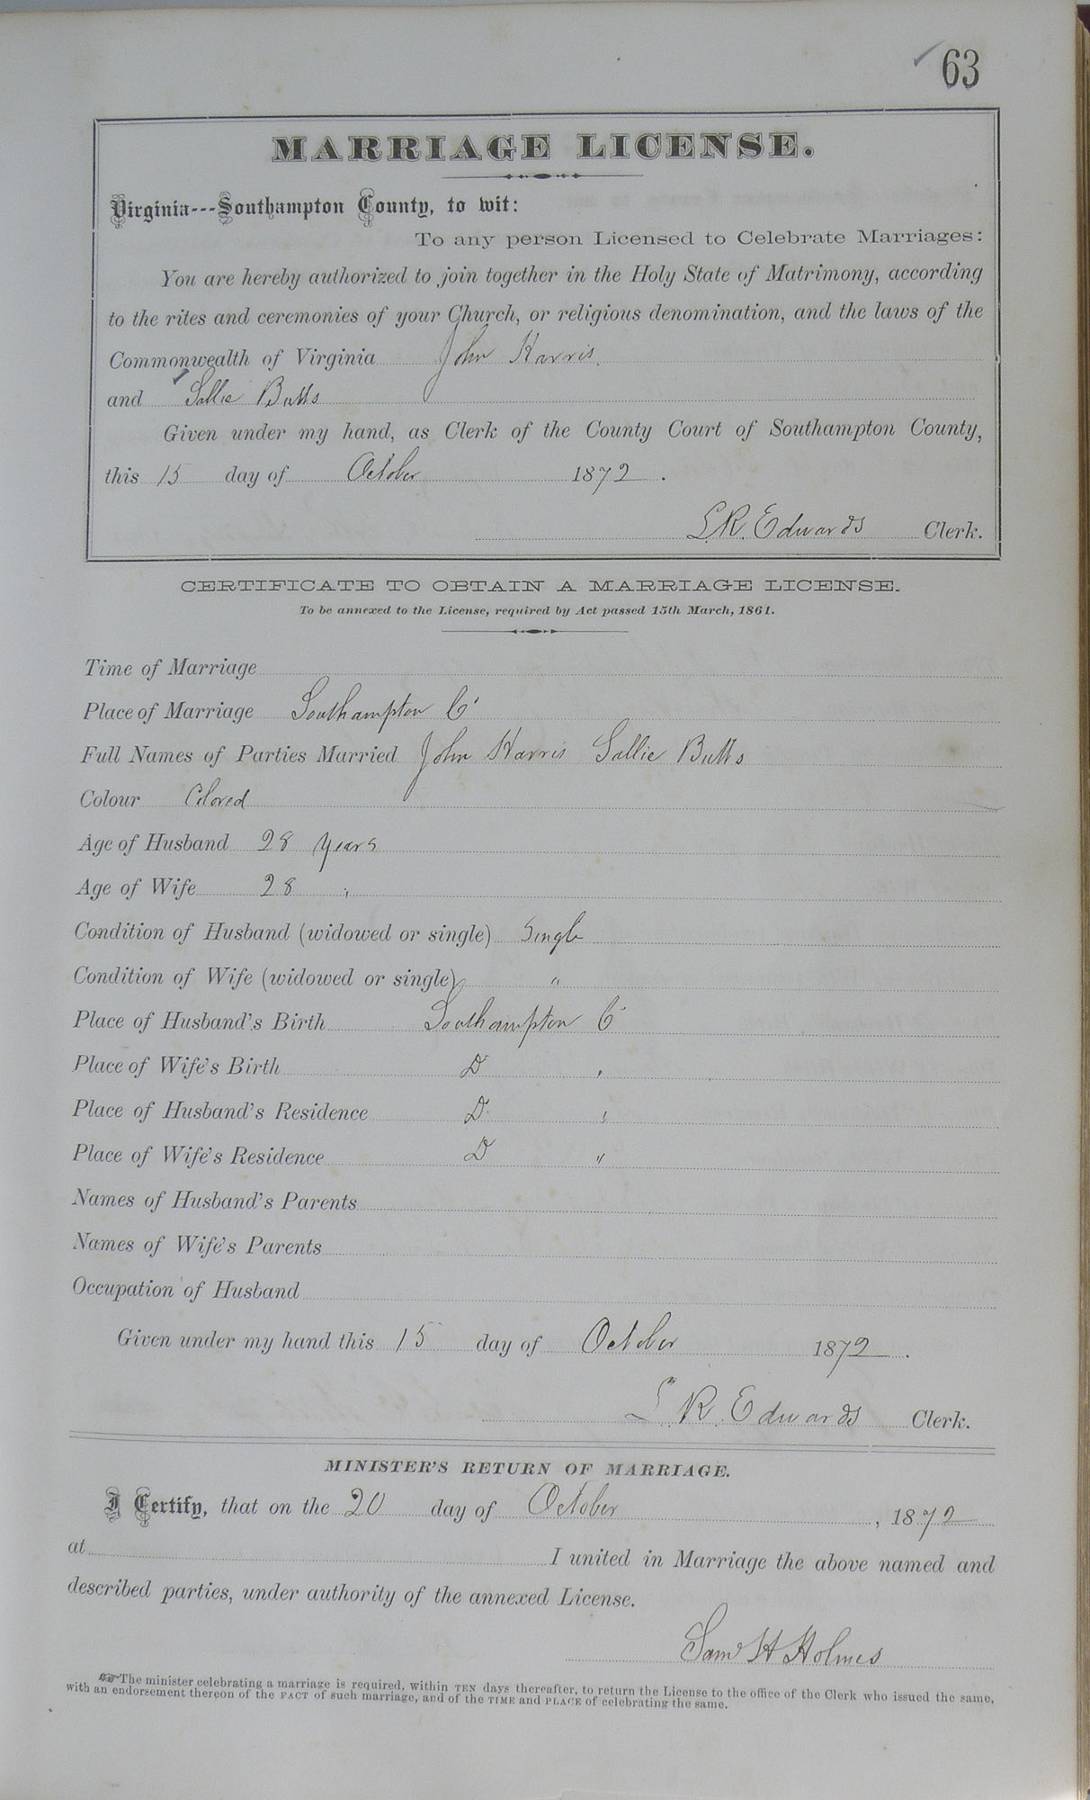 63
MARRIAGE LICENSE.
Virginia---Southampton County, to wit:
To any person Licensed to Celebrate Marriages:
You are hereby authorized to join together in the Holy State of Matrimony, according
to the rites and ceremonies of your Church, or religious denomination, and the laws of the
Commonwealth of Virginia John Harris.
and Sallie Butts
Given under my hand, as Clerk of the County Court of Southampton County,
this 15 day of October 1872.
L.R. Edwards Clerk.
CERTIFICATE TO OBTAIN A MARRIAGE LICENSE.
To be annexed to the License, required by Act passed 15th March, 1861.
Time of Marriage
Place of Marriage Southampton Co
Full Names of Parties Married John Harris Sallie Butts
Colour Colored
Age of Husband 28 years
Age of Wife 28 "
Condition of Husband (widowed or single) Single
Condition of Wife (widowed or single) "
Place of Husband's Birth Southampton Co
Place of Wife's Birth Do "
Place of Husband's Residence Do "
Place of Wife's Residence Do "
Names of Husband's Parents
Names of Wife's Parents
Occupation of Husband
Given under my hand this 15 day of October 1872.
L.R. Edwards Clerk.
MINISTER'S RETURN OF MARRIAGE.
I Certify, that on the 20 day of October, 1872
at I united in Marriage the above named and
described parties, under authority of the annexed License.
Saml H Holmes
The minister celebrating a marriage is required, within TEN days thereafter, to return the License to the office of the Clerk who issued the same,
with an endorsement thereon of the FACT of such marriage, and of the TIME and PLACE of celebrating the same.